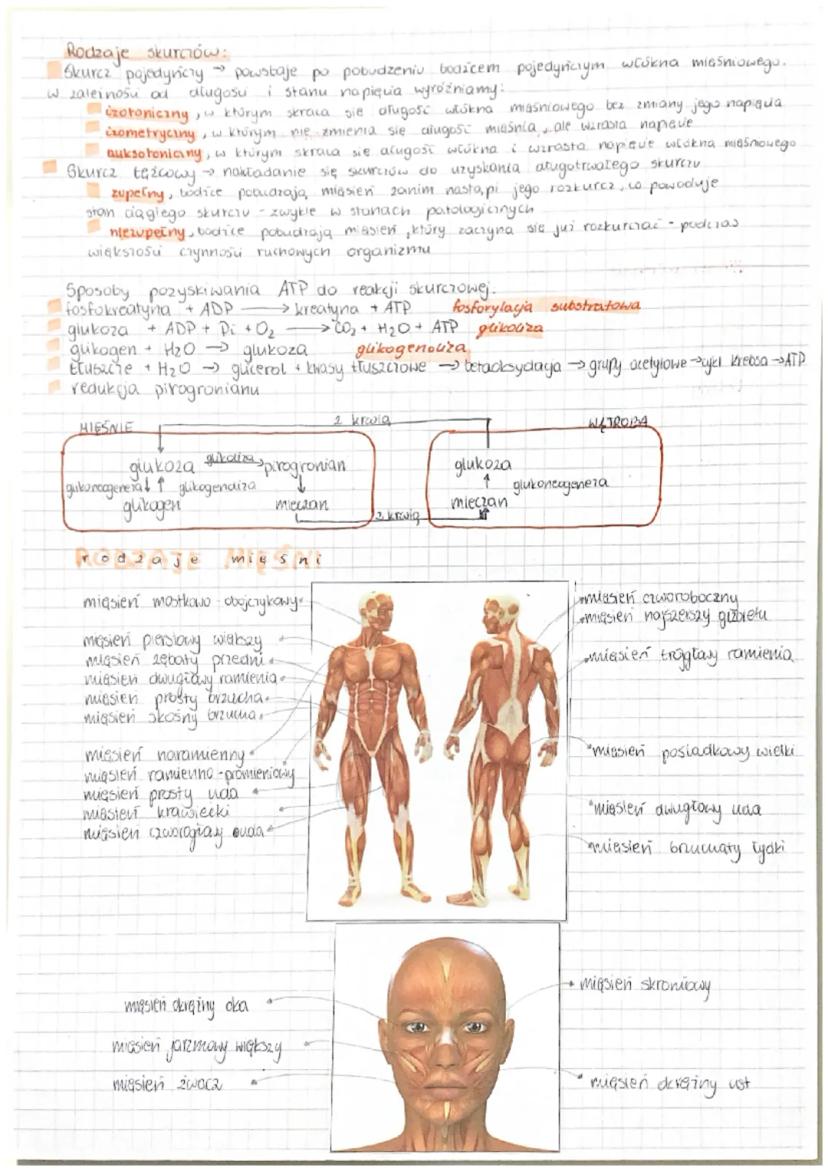 Rodzaje skurczów:
Skurcz pojedynczy → powstaje po pobudzeniu bodźcem pojedynczym włókna mięśniowego.
W zależności od długości i stanu napięcia wyróżniamy:
izotoniczny, w którym skraca się długość włókna mięśniowego bez zmiany jego napięcia
izometryczny, w którym nie zmienia się długość mięśnia, ale wzrasta napięcie
auksotoniczny, w którym skraca się długość włókna i wzrasta napięcie włókna mięśniowego
Skurcz tężcowy → nakładanie się skurczów do uzyskania długotrwałego skurczu
zupełny, bodźce pobudzają mięsień zanim nastąpi jego rozkurcz, co powoduje
stan ciągłego skurczu - zwykle w stanach patologicznych
niezupełny, bodźce pobudzają mięsień, który zaczyna się już rozkurczać - podczas
większości czynności ruchowych organizmu
Sposoby pozyskiwania ATP do reakcji skurczowej.
fosfokreatyna + ADP → kreatyna + ATP fosforylacja substratowa
glukoza + ADP + Pi + O₂ → CO₂ + H₂O + ATP glikoliza
glikogen + H₂O → glukoza glikogenoliza
tłuszcze + H₂O → glicerol + kwasy tłuszczowe → betaoksydacja → grupy acetylowe → cykl krebsa → ATP
redukcja pirogronianu
MIĘŚNIE z krwią WĄTROBA
glukoza glikoliza pirogronian glukoza
glukoneogeneza glikogenoliza glukoneogeneza
glikogen mleczan mleczan
z krwią
rodzaje mięśni
mięsień mostkowo-obojczykowy
mięsień piersiowy większy
mięsień zębaty przedni
mięsień dwugłowy ramienia
mięsień prosty brzucha
mięsień skośny brzucha
mięsień naramienny
mięsień ramienno-promieniowy
mięsień prosty uda
mięsień krawiecki
mięsień czworogłowy uda
mięsień czworoboczny
mięsień najszerszy grzbietu
mięsień trójgłowy ramienia
mięsień pośladkowy wielki
mięsień dwugłowy uda
mięsień brzuchaty łydki
mięsień okrężny oka
mięsień jarzmowy większy
mięsień żwacz
mięsień skroniowy
mięsień okrężny ust